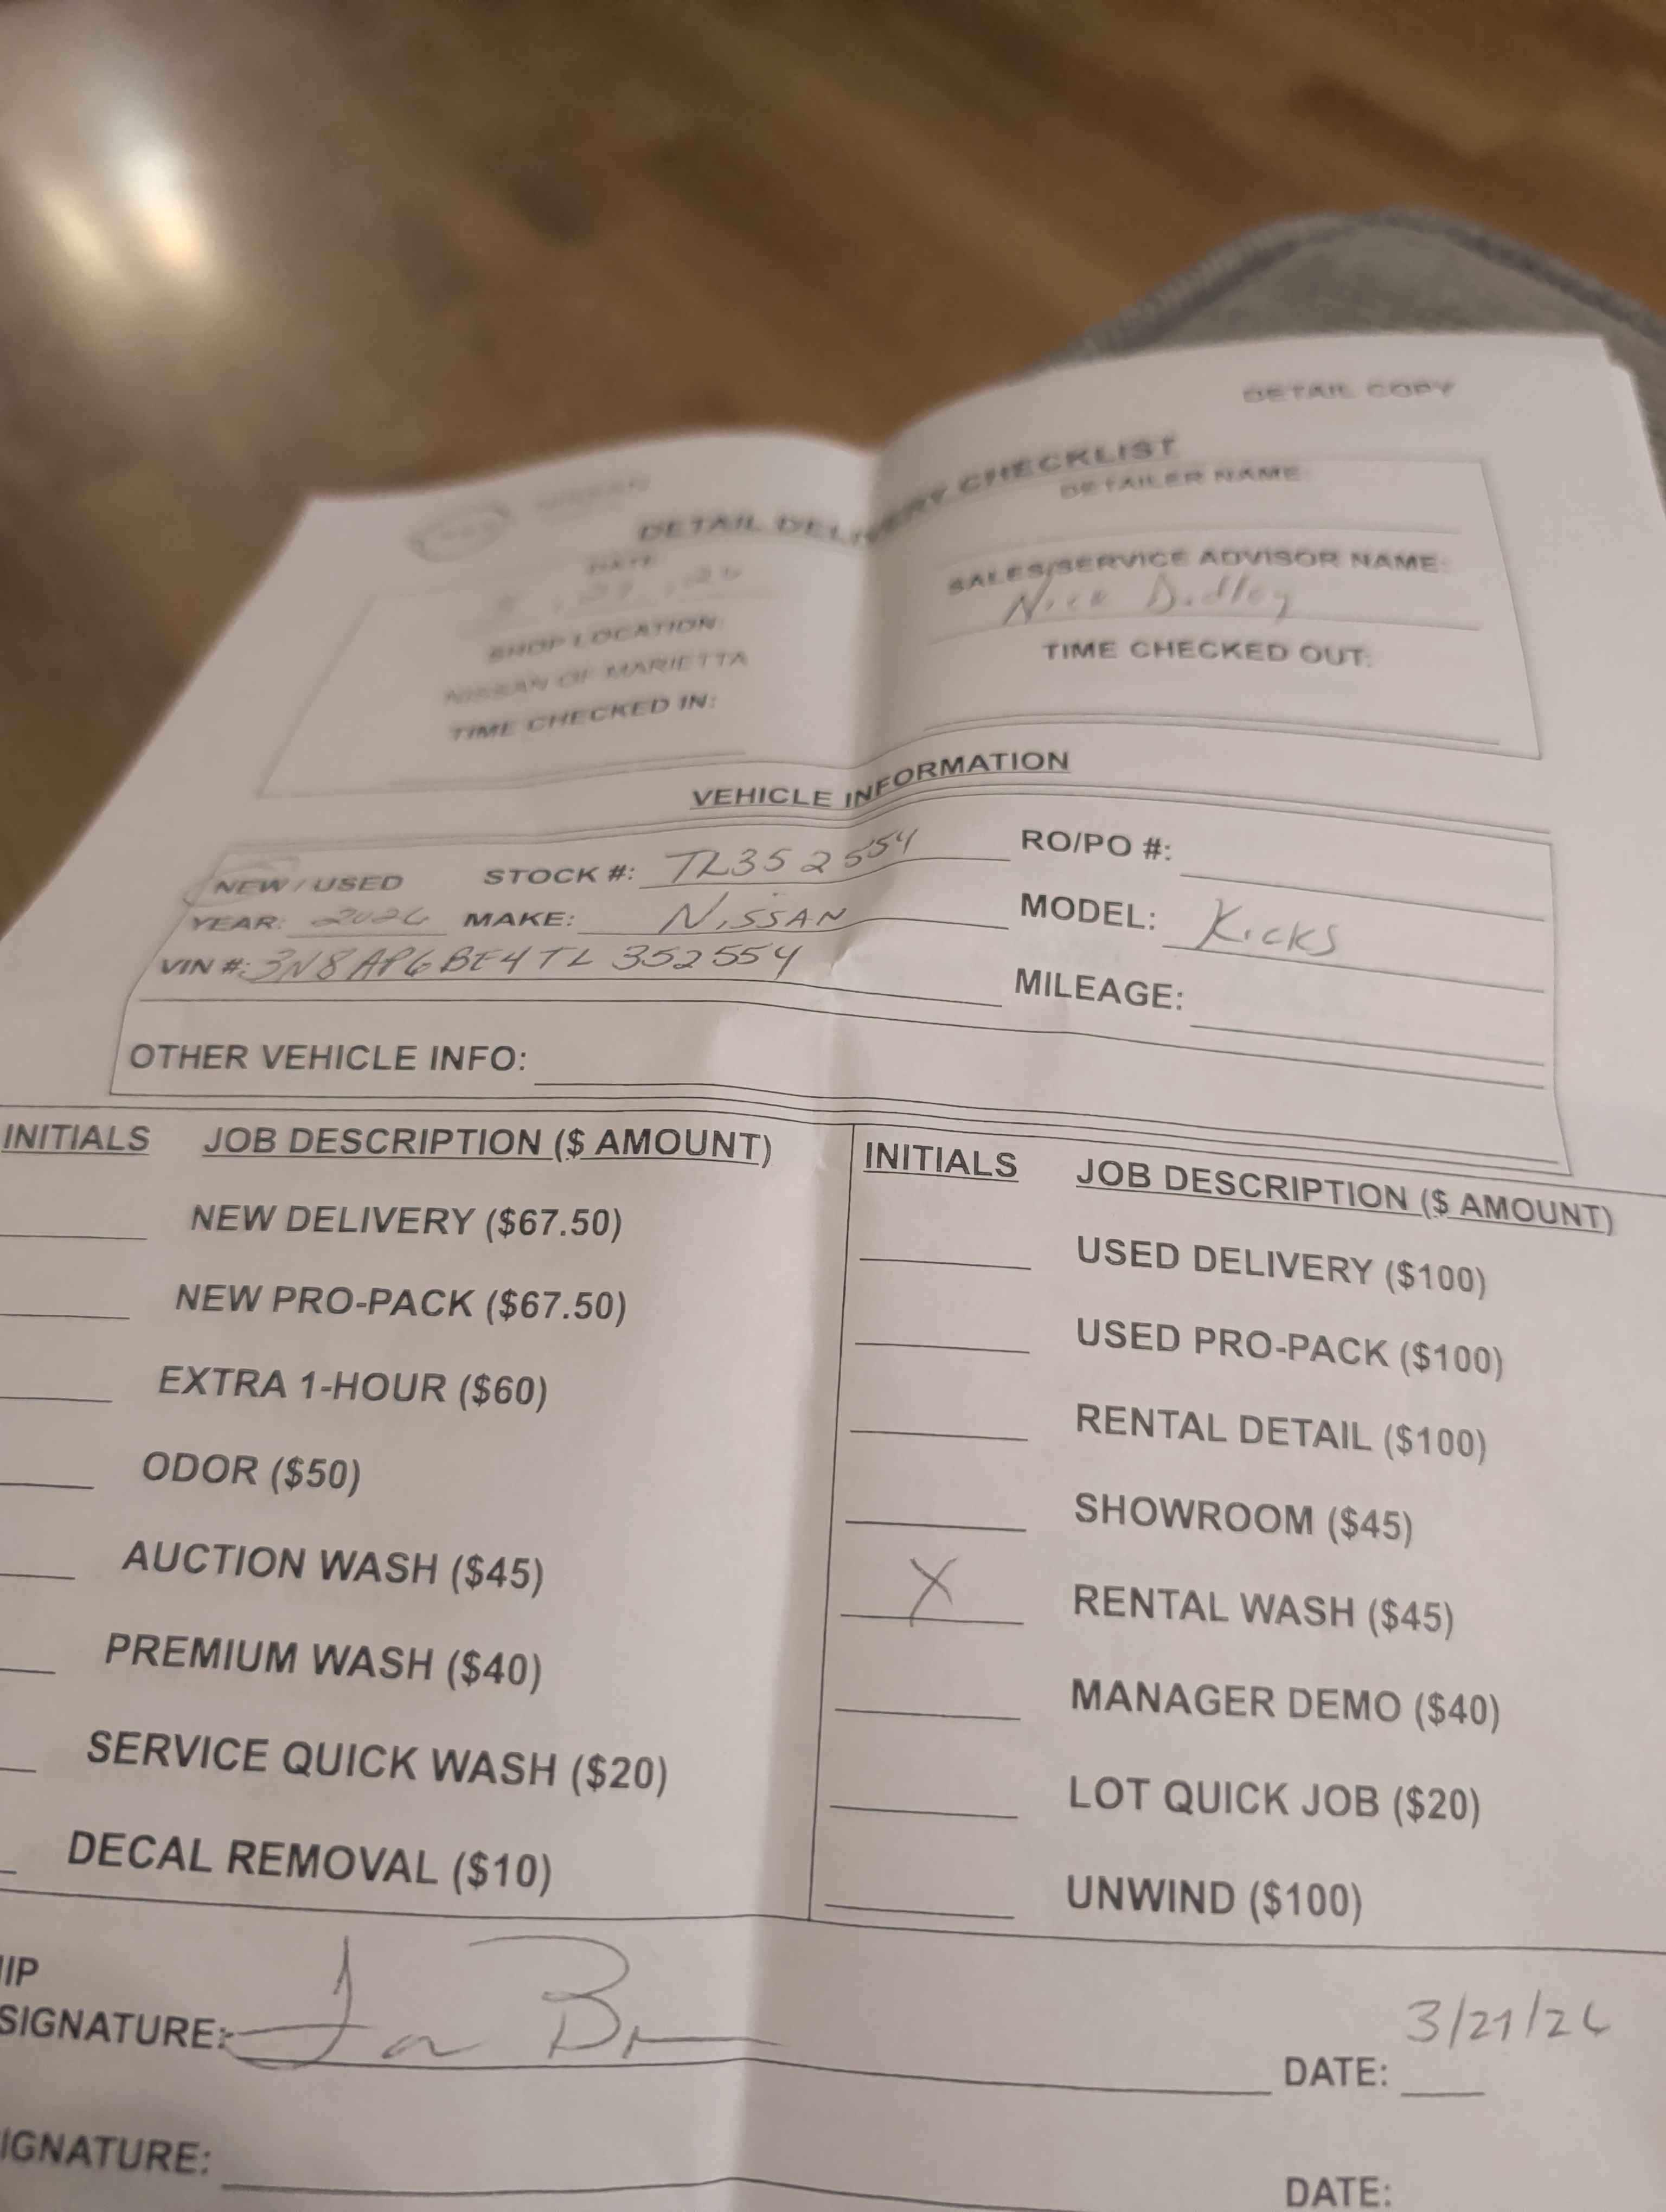 DETAIL COPY
NISSAN
DETAIL DELIVERY CHECKLIST
DATE
SHOP LOCATION:
NISSAN OF MARIETTA
TIME CHECKED IN:
DETAILER NAME:
SALES/SERVICE ADVISOR NAME:
Nick Dudley
TIME CHECKED OUT:
VEHICLE INFORMATION
NEW / USED STOCK #: TL352554 RO/PO #:
YEAR: 2026 MAKE: NISSAN MODEL: Kicks
VIN #: 3N8AP6BE4TL352554 MILEAGE:
OTHER VEHICLE INFO:
INITIALS JOB DESCRIPTION ($ AMOUNT) INITIALS JOB DESCRIPTION ($ AMOUNT)
NEW DELIVERY ($67.50) USED DELIVERY ($100)
NEW PRO-PACK ($67.50) USED PRO-PACK ($100)
EXTRA 1-HOUR ($60) RENTAL DETAIL ($100)
ODOR ($50) SHOWROOM ($45)
AUCTION WASH ($45) X RENTAL WASH ($45)
PREMIUM WASH ($40) MANAGER DEMO ($40)
SERVICE QUICK WASH ($20) LOT QUICK JOB ($20)
DECAL REMOVAL ($10) UNWIND ($100)
HIP
SIGNATURE: DATE: 3/21/26
IGNATURE: DATE: